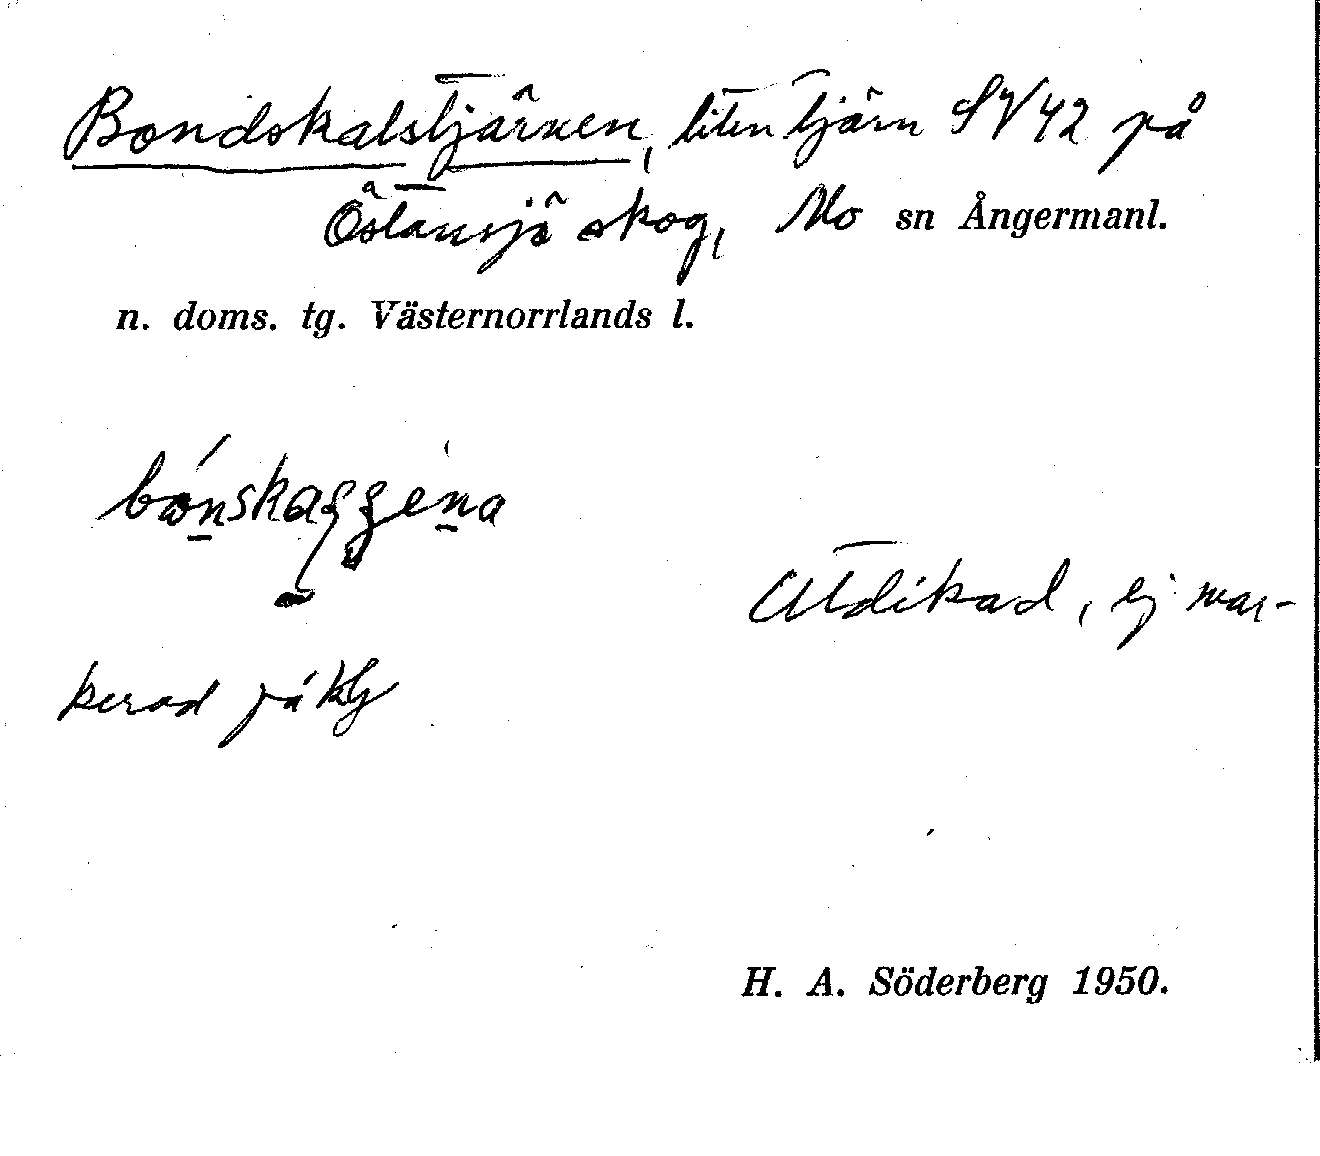 Bondskalstjärnen, liten tjärn SV42 på
Östansjö skog, Mo sn Ångermanl.
n. doms. tg. Västernorrlands l.
Utdikad, ej mar-
kerad på
H. A. Söderberg 1950.